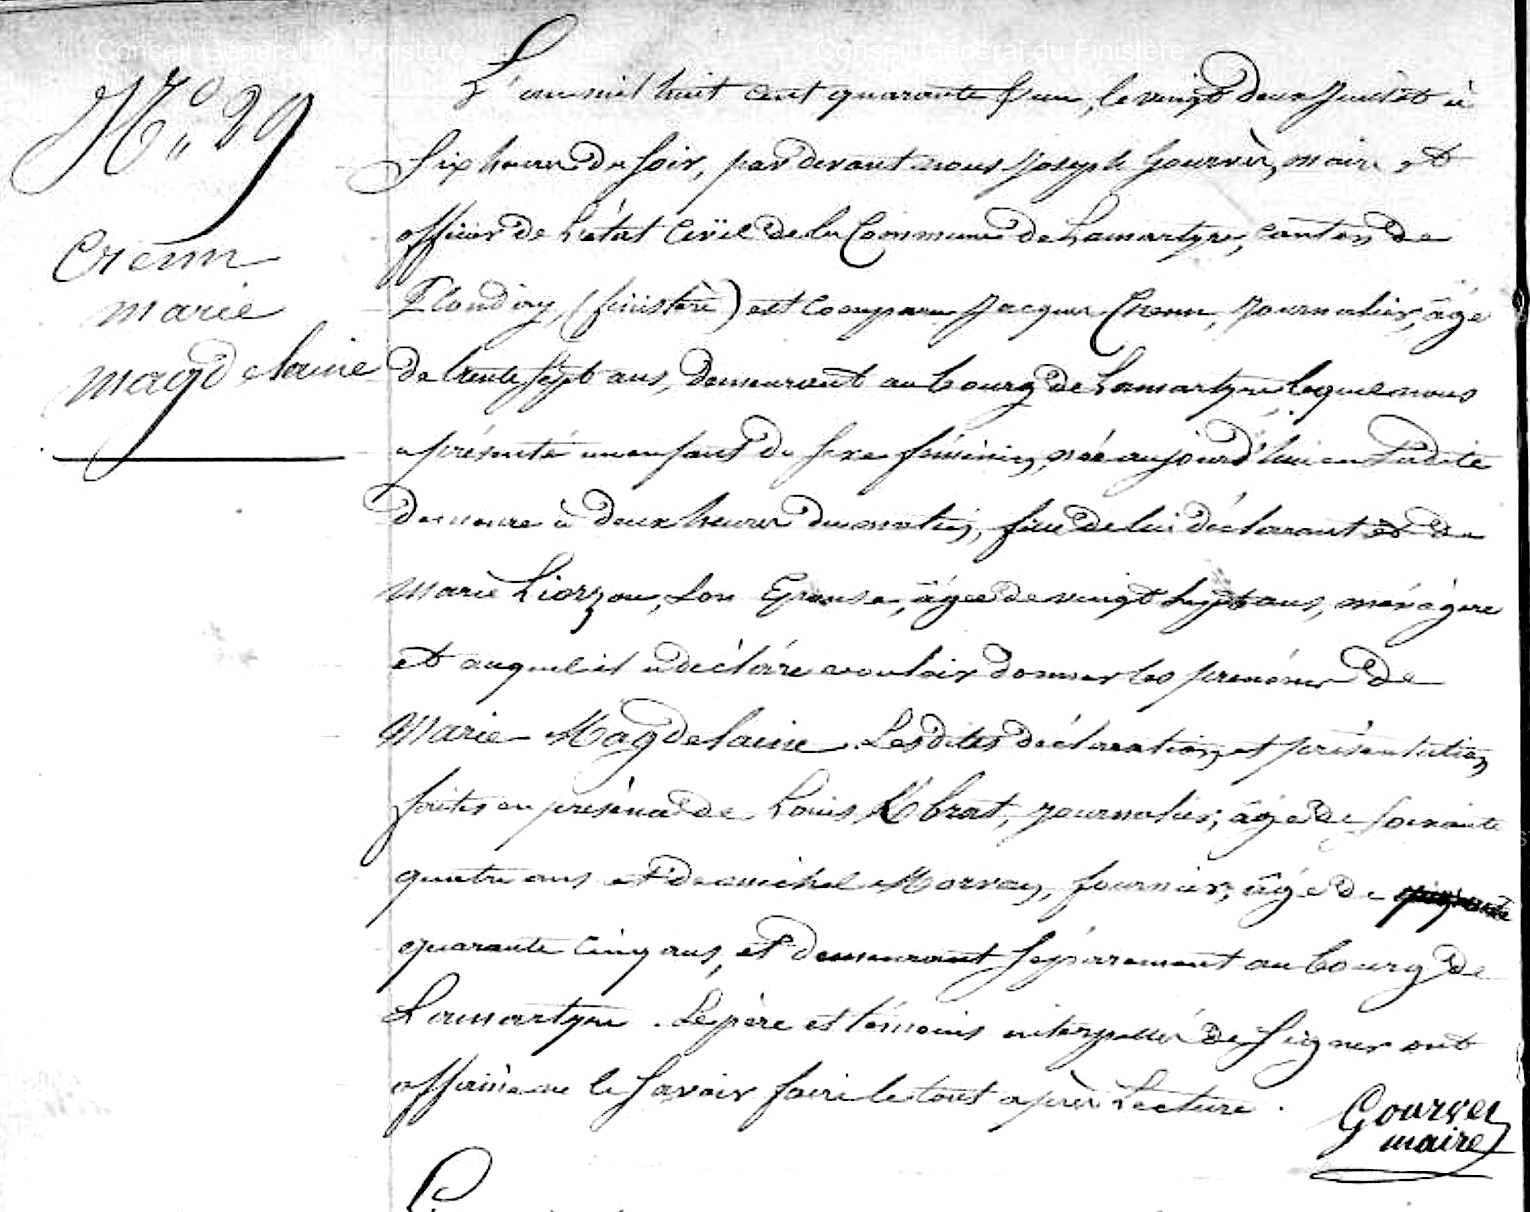 Conseil Général du Finistère Conseil Général du Finistère
N° 29
Crenn
marie
magdelaine
L'an mil huit cent quarante un, le vingt deux juillet à
Six heures du soir, par devant nous joseph Gourvès, maire et
officier de L'état Civil de la Commune de Lamartyre, canton de
Ploudiry, (finistère) est comparu Jacques Crenn, journalier, âgé
de trente sept ans, demeurant au bourg de Lamartyre lequel nous
a présenté un enfant du sexe féminin, née aujourd'hui en Ladite
demeure à deux heures du matin, fille de lui déclarant et de
Marie Liorzou, son Epouse, âgée de vingt sept ans, ménagère
et auquel il a déclaré vouloir donner les prénoms de
Marie Magdelaine. Lesdites déclaration et présentation
faites en présence de Louis K/brat, journalier, âgé de soixante
quatre ans et de michel Morvan, fournier, âgé de
quarante cinq ans, et demeurant séparement au bourg de
Lamartyre. Le père et témoins interpellés de signer ont
affirmé ne le savoir faire le tout après Lecture.
Gourves
maire